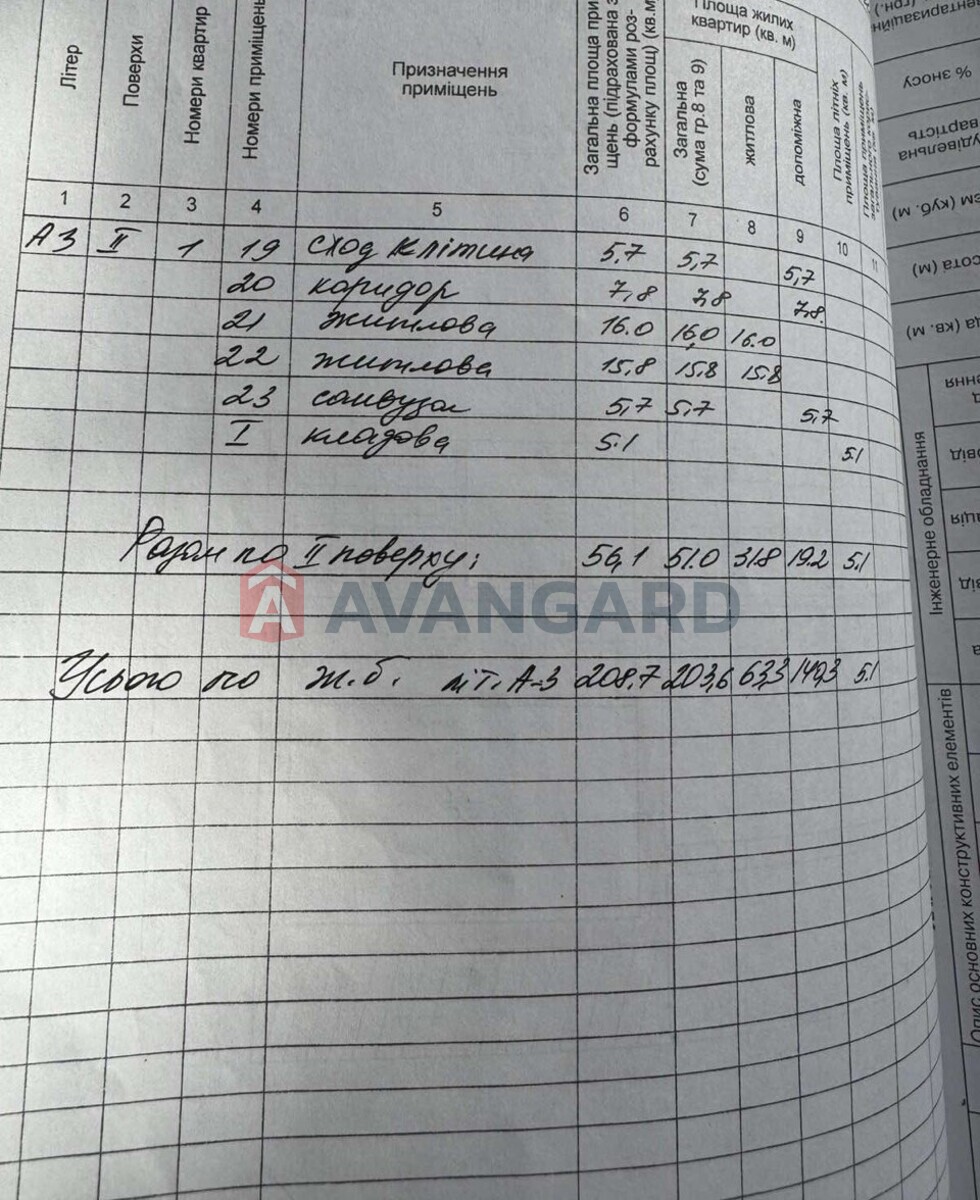 Літер
Поверхи
Номери квартир
Номери приміщень
Призначення
приміщень
Загальна площа при
щень (підрахована з
формулами роз-
рахунку площ) (кв.м
Площа жилих
квартир (кв. м)
Загальна
(сума гр.8 та 9)
житлова
допоміжна
Площа літніх
приміщень (кв. м)
Площа приміщень
загального
1 2 3 4 5 6 7 8 9 10 11
А3 ІІ 1 19 сход клітина 5,7 5,7 5,7
20 коридор 7,8 7,8 7,8
21 житлова 16.0 16,0 16.0
22 житлова 15,8 15.8 15.8
23 санвузол 5,7 5.7 5,7
І кладова 5.1 5.1
Разом по ІІ поверху: 56,1 51.0 31.8 19.2 5.1
AVANGARD
Усього по ж.б. літ. А-3 208.7 203,6 63,3 140,3 5.1
ентаризаційн
(грн.)
% зносу
удівельна
вартість
єм (куб. м)
сота (м)
ща (кв. м)
Інженерне обладнання
ення
овід
ція
від
Опис основних конструктивних елементів